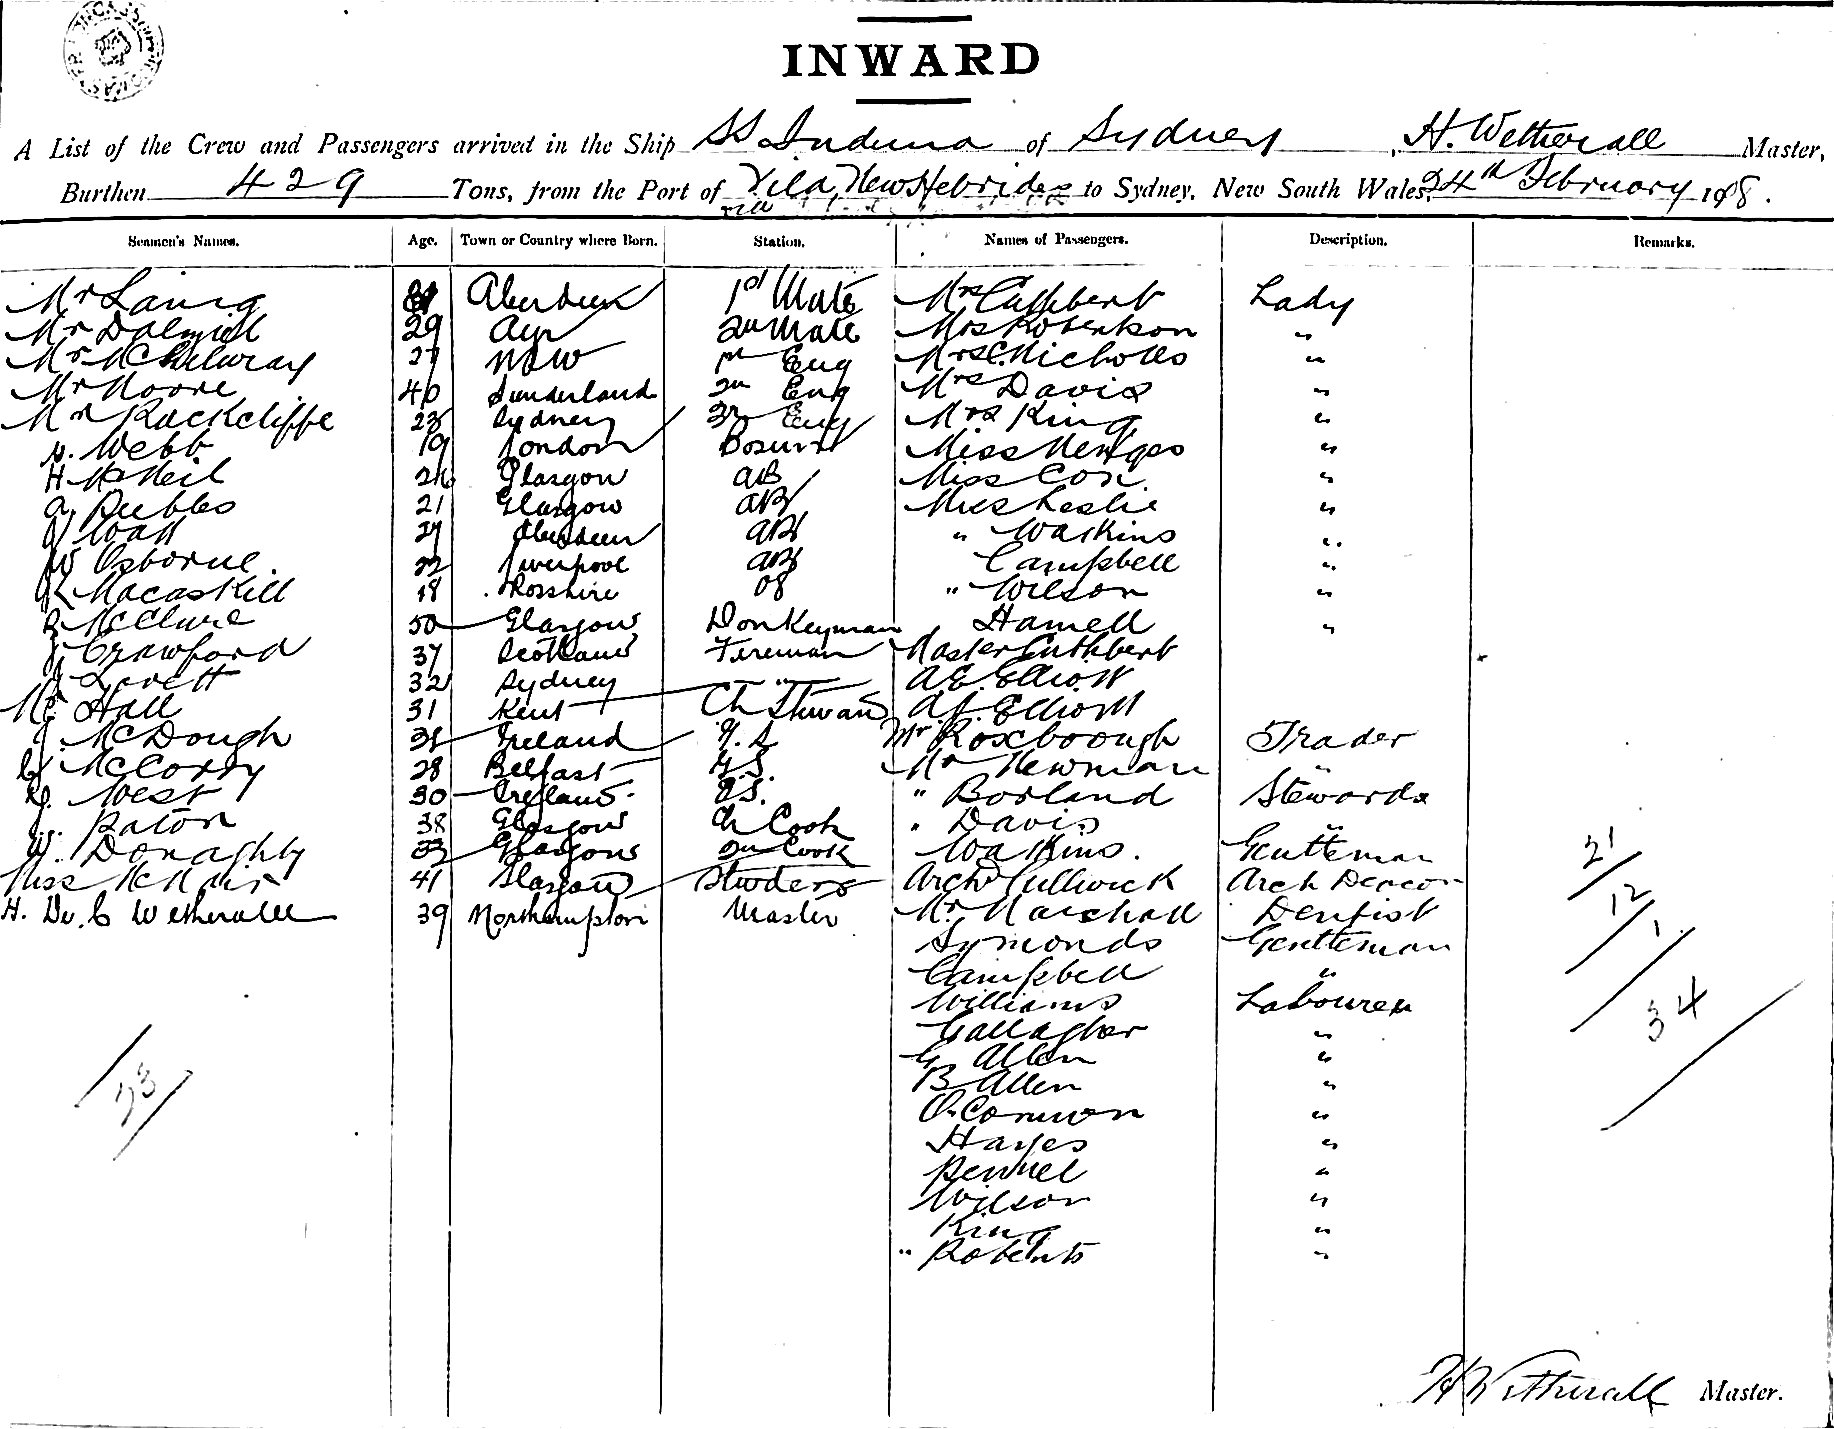 INWARD
A List of the Crew and Passengers arrived in the Ship SS Induna of Sydney, H. Wetherall Master,
Burthen 429 Tons, from the Port of Vila, New Hebrides to Sydney, New South Wales, 24th February 1908.
via
Seamen's Names. Age. Town or Country where Born. Station. Names of Passengers. Description. Remarks.
Mr Laing Aberdeen 1st Mate Mrs Cuthbert Lady
Mr Dalziell 29 Ayr 2nd Mate Mrs Robertson "
Mr McIlwray 27 NSW 1st Eng Mrs C. Nicholls "
Mr Moore 40 Sunderland 2n Eng Mrs Davis "
Mr Rackcliffe 23 Sydney 3r Eng Mrs King "
Webb 19 London Bosun Miss Mentges "
H McNeil Glasgow AB Miss Cox "
A Peebles 21 Glasgow AB Miss Leslie "
Watt Aberdeen AB " Watkins "
W Osborne 22 Liverpool AB Campbell "
Macaskill 18 Rosshire OS " Wilson "
McClure 50 Glasgow Donkeyman Hamell "
J Crawford 37 Scotland Fireman Master Cuthbert
J 32 Sydney " A E Elliott
Mr Hall 31 Kent Ch Steward A J. Elliott
J. McDough Ireland Mr Roxboough Trader
McCorry 28 Belfast Mr Newman "
West 30 Ireland " Borland Stewards
J. Paton 38 Glasgow Ch Cook " Davis "
W. Donaghy 33 Glasgow 2n Cook Watkins. Gentleman
Miss McNair 41 Glasgow Studers Archd Cullwick Arch Deacon
H. De. C Wetherall 39 Northampton Master Mr Marshall Dentist
Symonds Gentleman
Campbell "
Williams Labourer
Gallagher "
G Allen "
B Allen "
O.Connor "
Hayes "
Pennel "
Wilson "
King "
" Roberts "
21
12
1
34
23
H Wetherall Master.